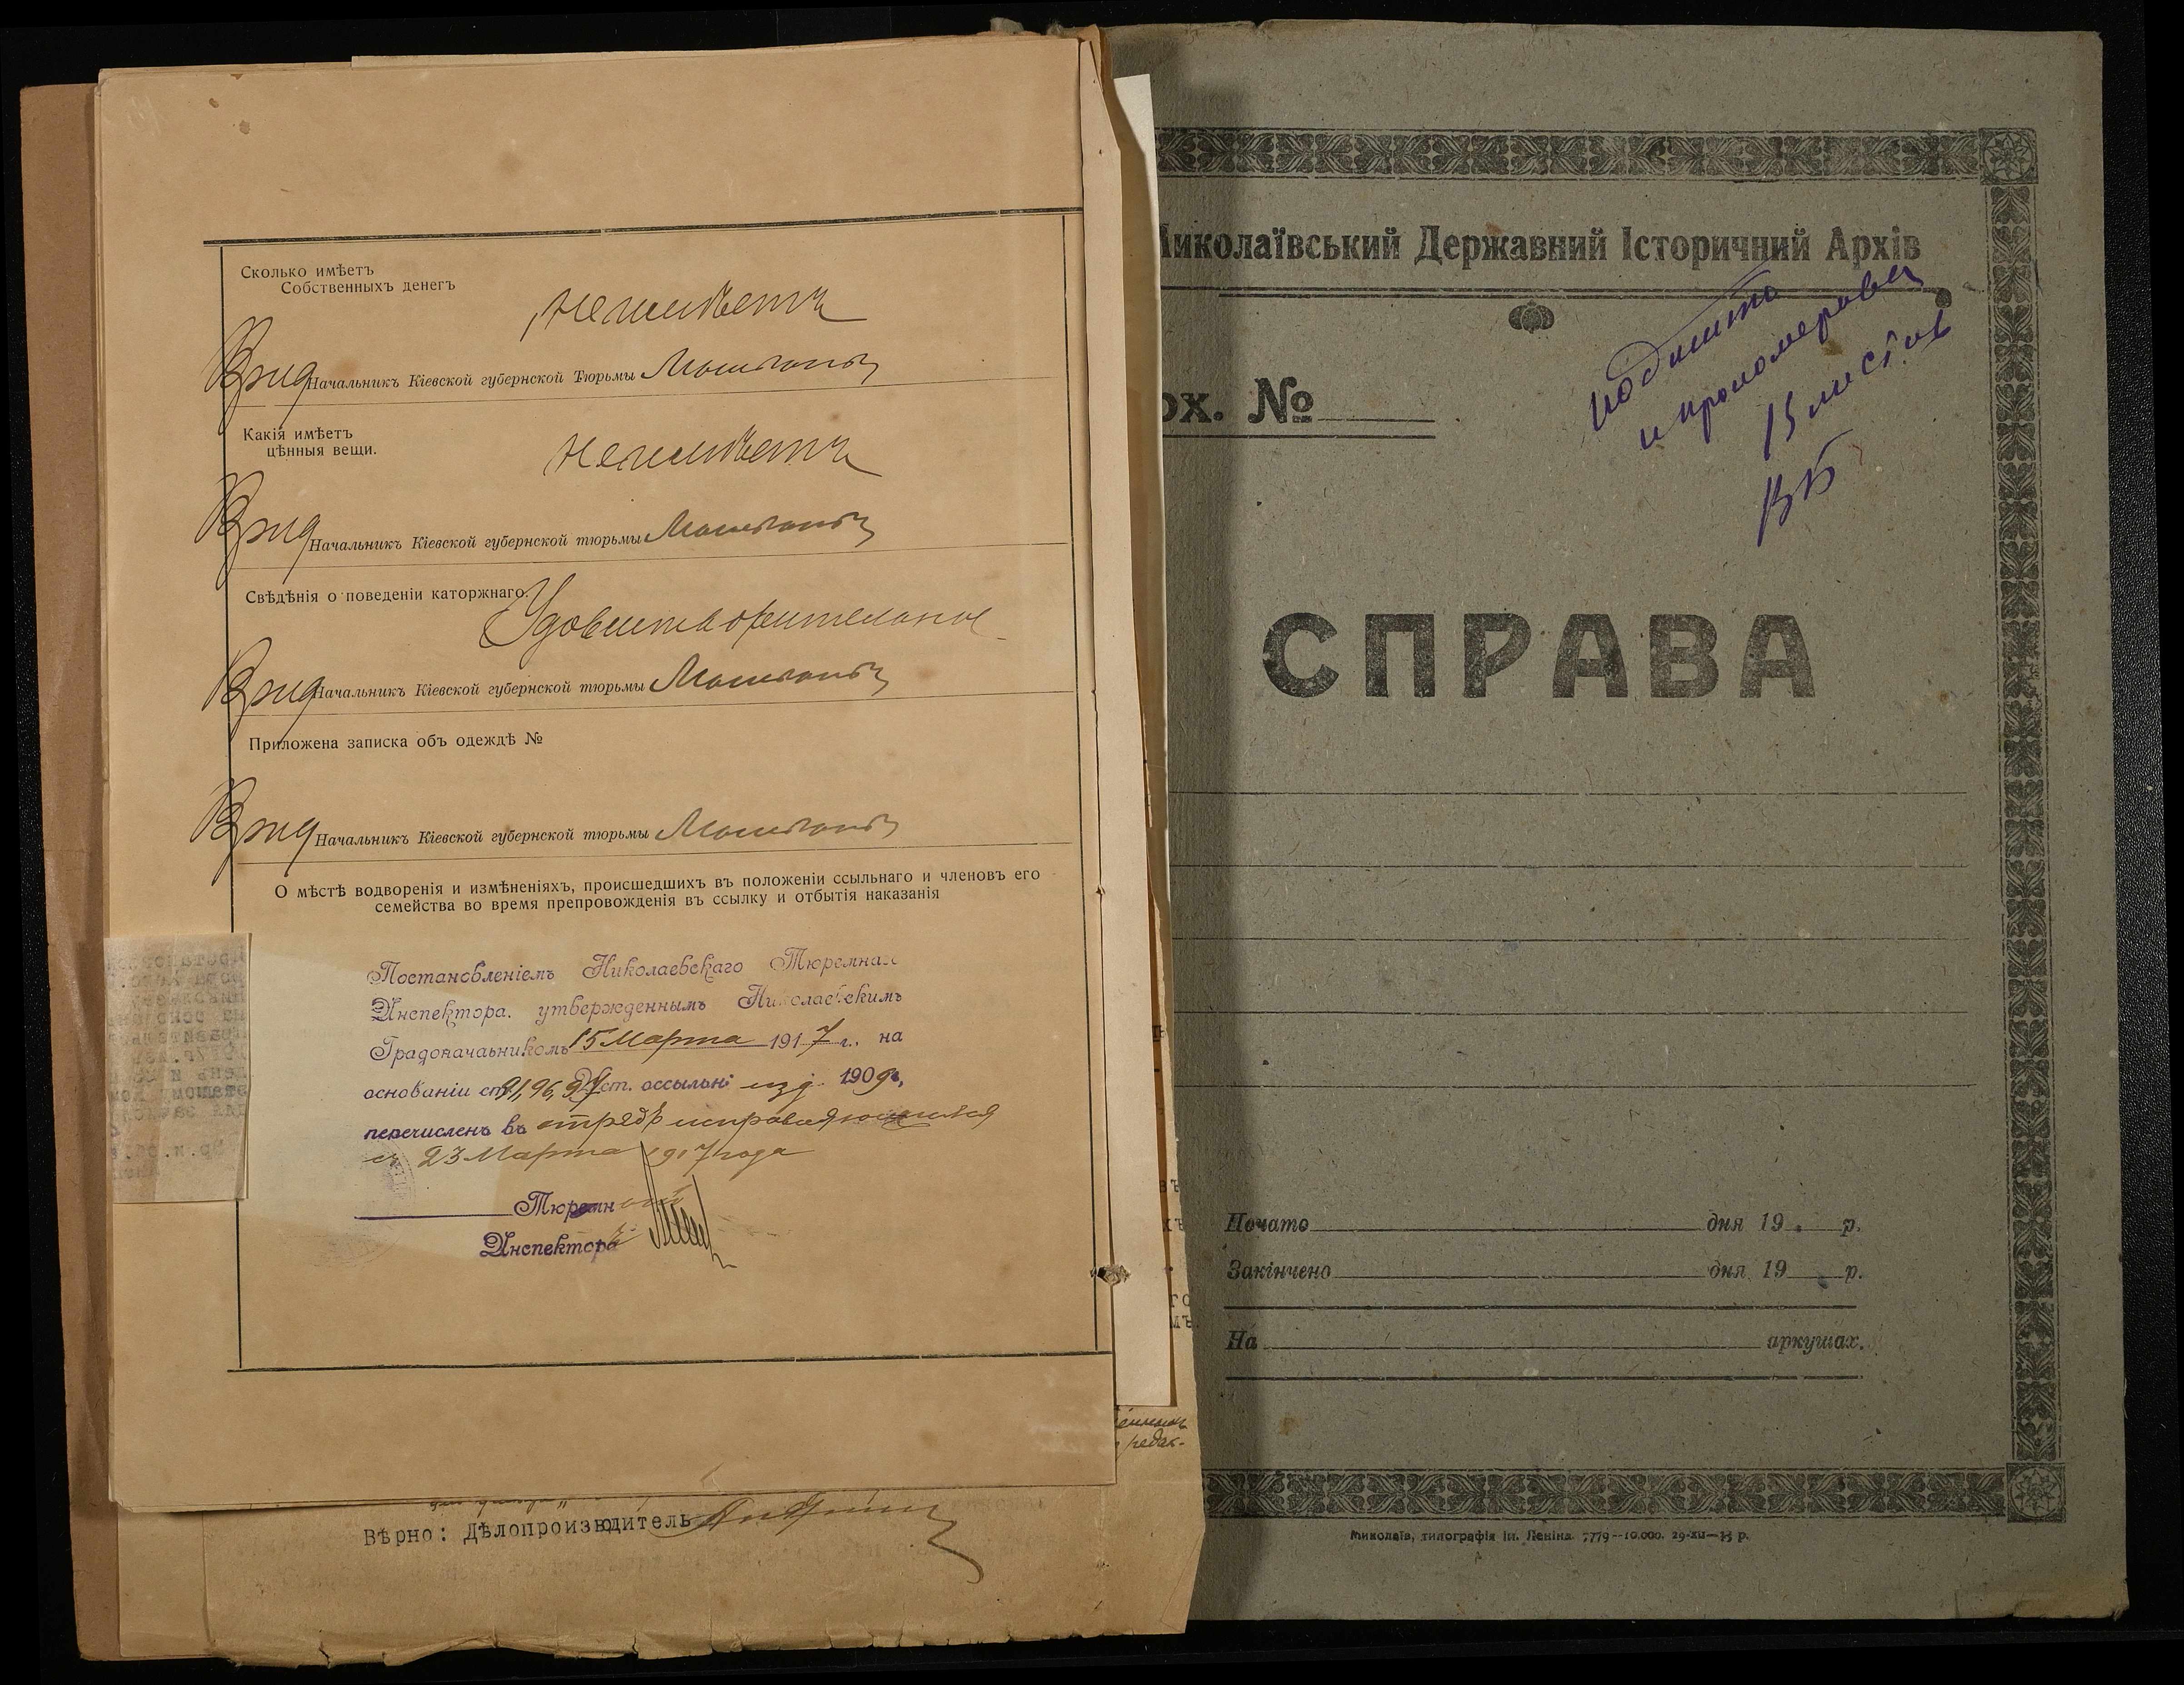 Сколько имѣетъ
Собственныхъ денегъ
неимѣетъ
Врид Начальникъ Кіевской губернской Тюрьмы
Какія имѣетъ
цѣнныя вещи.
неимѣетъ
Врид Начальникъ Кіевской губернской тюрьмы
Свѣдѣнія о поведеніи каторжнаго.
Удовлетворительное
Врид Начальникъ Кіевской губернской тюрьмы
Приложена записка объ одеждѣ №
Врид Начальникъ Кіевской губернской тюрьмы
О мѣстѣ водворенія и измѣненіяхъ, происшедшихъ въ положеніи ссыльнаго и членовъ его
семейства во время препровожденія въ ссылку и отбытія наказанія
Постановленіемъ Николаевскаго Тюремна
Инспектора. утвержденнымъ Николаевскимъ
15 Марта 1917 г. на
основаніи ст. 91, 96, 97 Уст. оссыльн изд. 1909г,
перечисленъ въ отрядъ исправляющихся
съ 23 Марта 1917 года
Тюремный
Инспектора
Вѣрно: Дѣлопроизводитель
Миколаївський Державний Історичний Архів
ох. №
подшито
и пронумеровано
15 листов
СПРАВА
Почато дня 19 р.
Закінчено дня 19 р.
На аркушах.
Миколаїв, типографія ім. Леніна 7779—10.000. 29-XII—33 р.